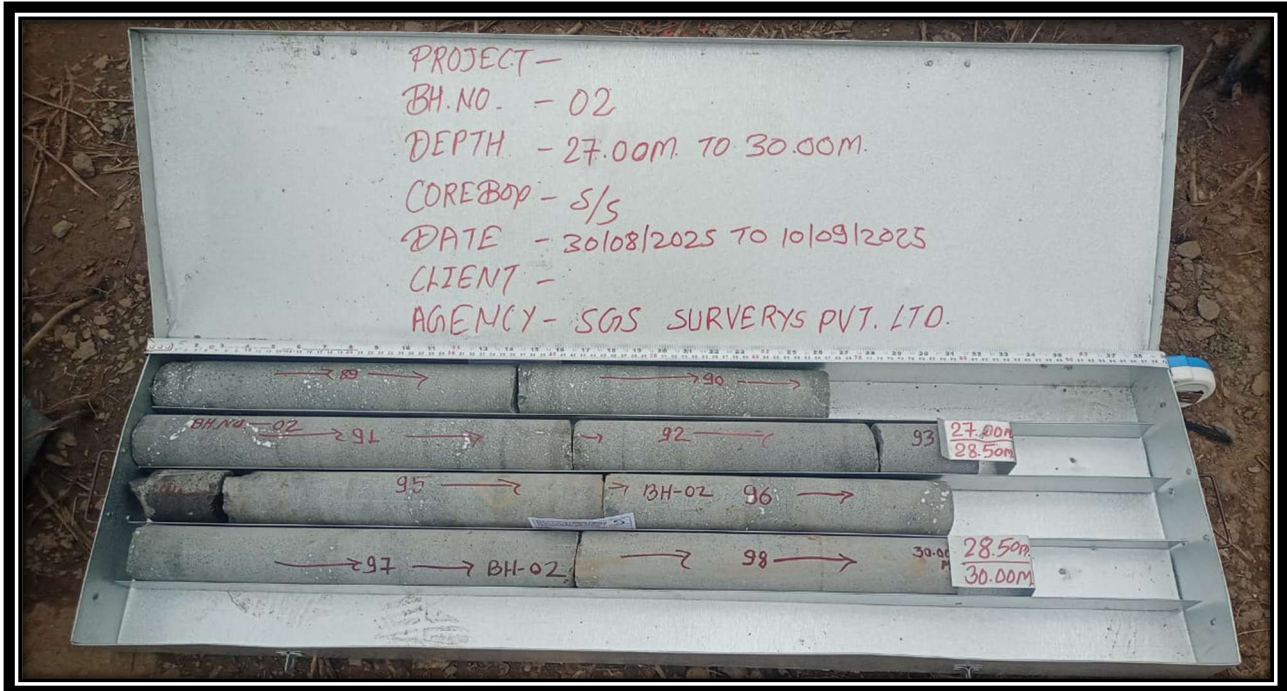 PROJECT -
BH.NO. - 02
DEPTH - 27.00M. TO 30.00M.
COREBOX - S/S
DATE - 30/08/2025 TO 10/09/2025
CLIENT -
AGENCY - SGS SURVERYS PVT. LTD.
89
90
BH.NO - 02
91
92
93
27.00M
28.50M
95
BH-02 96
97 BH-02
98
28.50M
30.00M